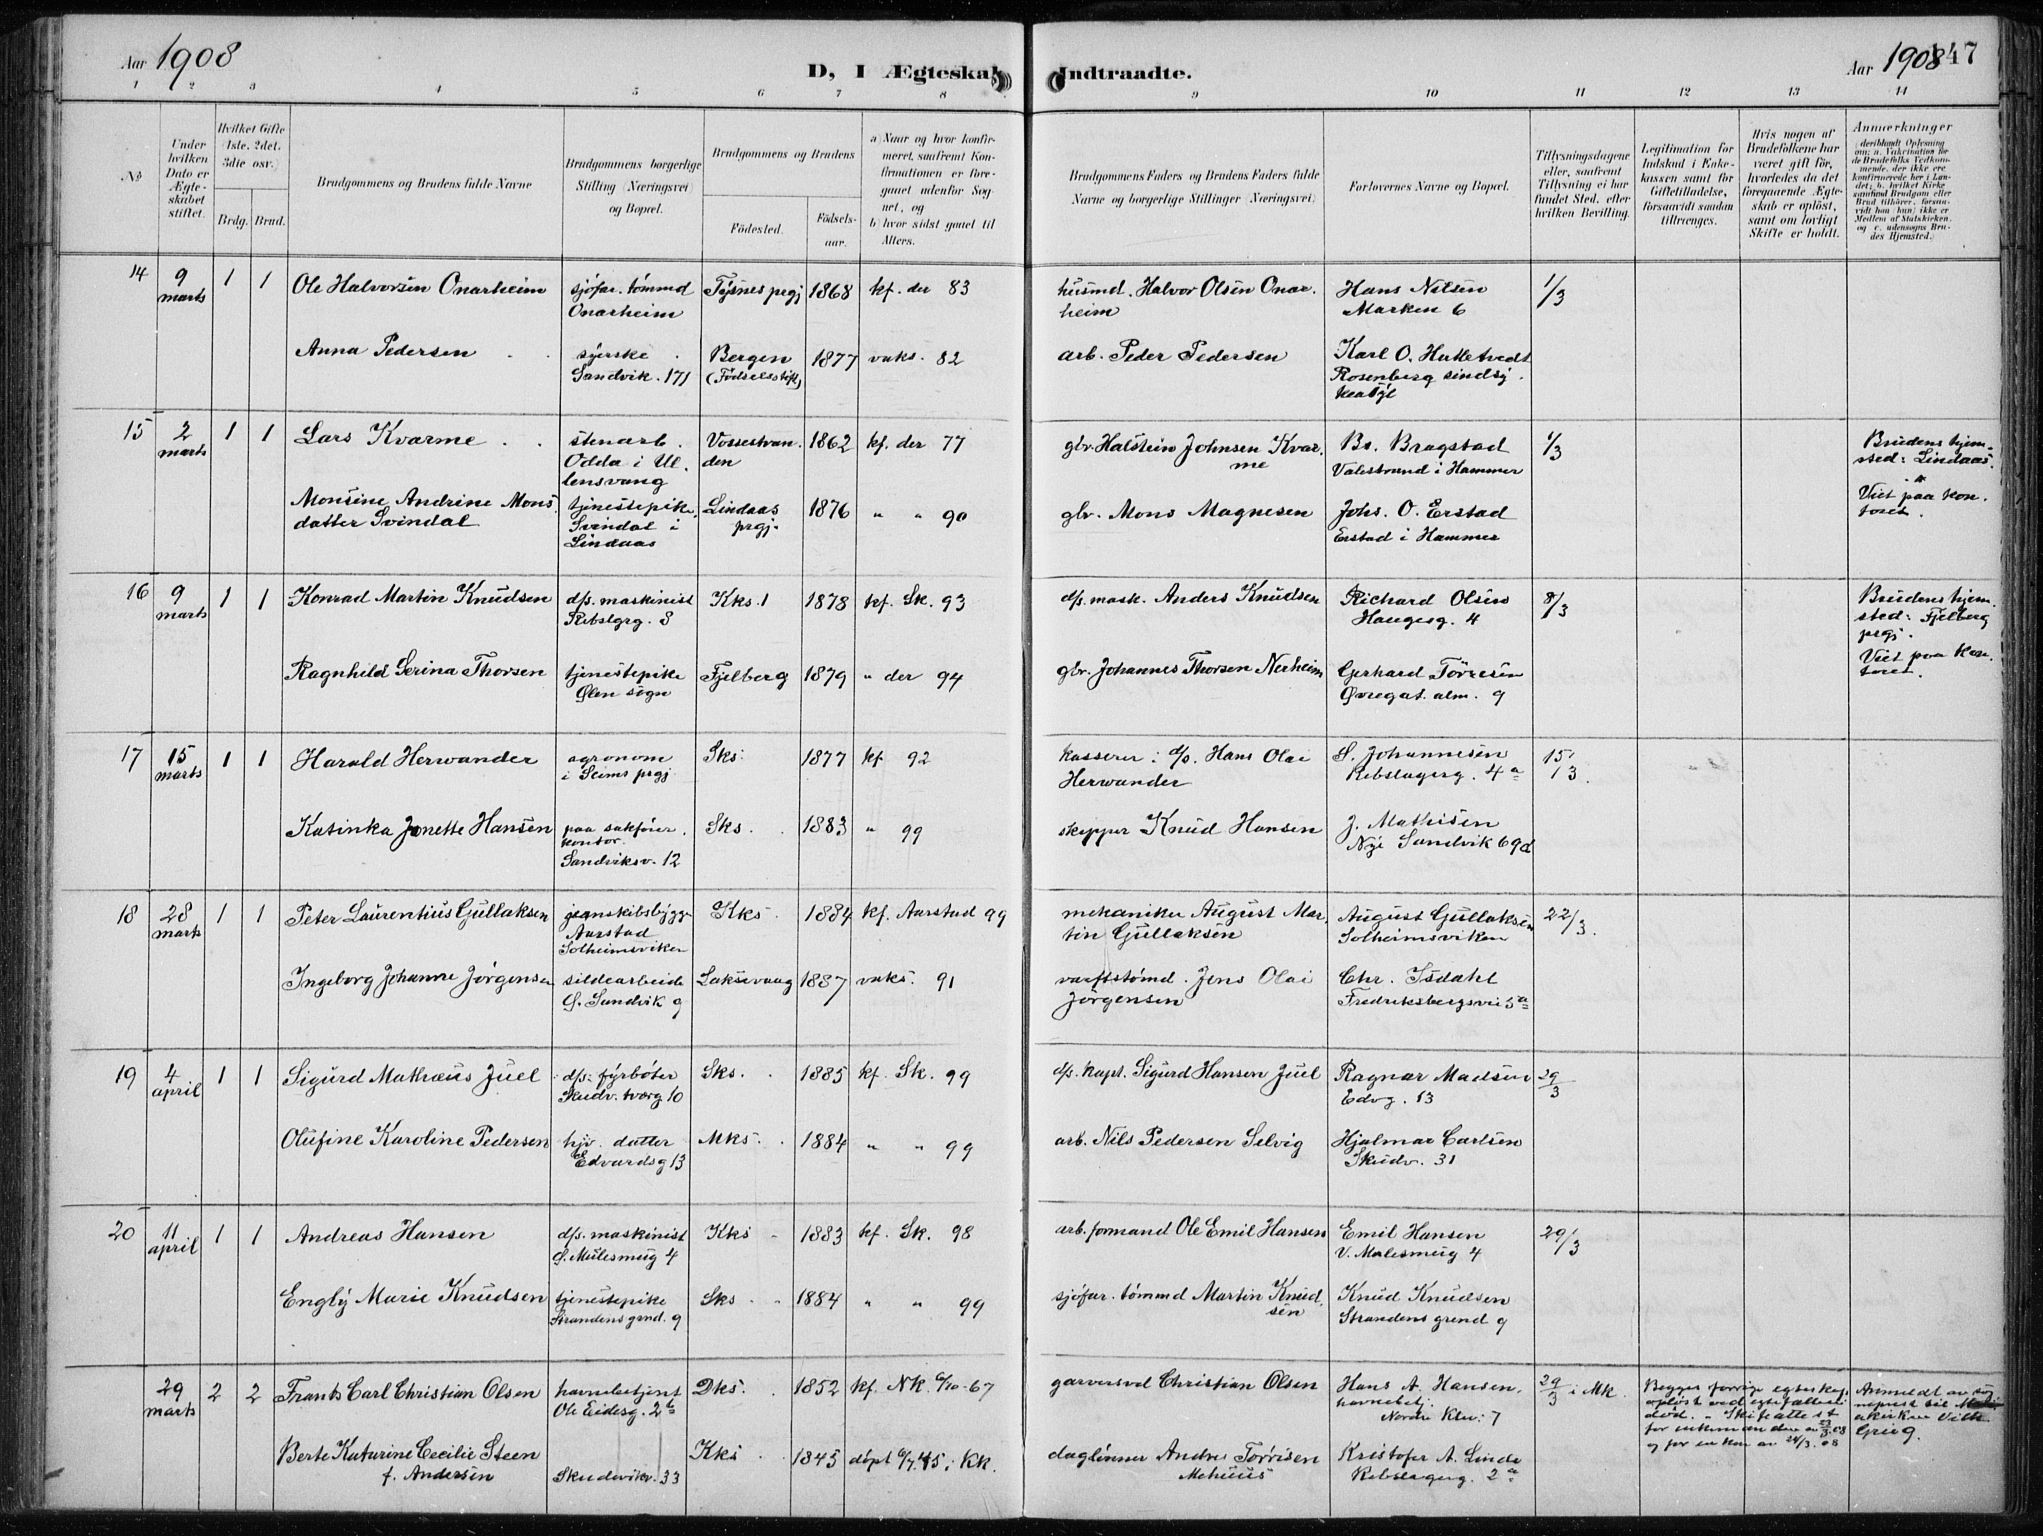 Aar 1908
D, I Ægteska
Indtraadte.
Aar 1908
147
1 2 3 4 5 6 7 8 9 10 11 12 13 14
No
Under hvilken Dato er Ægteskabet stiftet.
Hvilket Gifte (1ste. 2det. 3die osv.)
Brdg. Brud.
Brudgommens og Brudens fulde Navne
Brudgommens borgerlige Stilling (Næringsvei) og Bopæl.
Brudgommens og Brudens
Födested.
Födsels-aar.
a) Naar og hvor konfirmeret, saafremt Konfirmationen er foregaaet udenfor Sognet, og
b) hvor sidst gaaet til Alters.
Brudgommens Faders og Brudens Faders fulde Navne og borgerlige Stillinger (Næringsvei).
Forlovernes Navne og Bopæl.
Tillysningsdagene eller, saafremt Tillysning ei har fundet Sted, efter hvilken Bevilling.
Legitimation for Indskud i Enkekassen samt for Giftetilladelse, forsaavidt saadan tiltrænges.
Hvis nogen af Brudefolkene har været gift för, hvorledes da det foregaaende Ægteskab er oplöst, samt om lovligt Skifte er holdt.
Anmerkninger
14 9 marts 1 1 Ole Halvorsen Onarheim
sjöfar. tömmd Onarheim
Tysnes prgj 1868 kf. der 83
husmd. Halvor Olsen Onarheim
Hans Nilsen Marken 6
1/3
Anna Pedersen
syerske Sandvik. 171
Bergen (Födselsstift) 1877 vaks. 82
arb. Peder Pedersen
Karl O. Hatletvedt Rosenberg sindsy.
15 2 marts 1 1 Lars Kvarme
stenarb. Odda i Ullensvang
Vossestranden 1862 kf. der 77
gbr. Halstein Johnsen Kvarme
Bs. Bragstad Valestrand i Hammer
1/3
Brudens hjemsted: Lindaas.
Viet paa kontoret.
Monsine Andrine Monsdatter Svindal
tjenestepike, Svindal i Lindaas
Lindaas prgj. 1876 " " 90
gbr. Mons Magnesen
Johs. O. Erstad Erstad i Hammer
16 9 marts 1 1 Konrad Martin Knudsen
d/s. maskinist Rebslgrg. 8
Kks. 1878 kf. Sk. 93
d/s. mask. Anders Knudsen
Richard Olsen Haugesg. 4
8/3
Brudens hjemsted: Fjelberg prgj.
Viet paa kontoret.
Ragnhild Serina Thorsen
tjenestepike Ølen sogn
Fjelberg 1879 " der 94
gbr. Johannes Thorsen Nerheim
Gerhard Törresen Øvregat. alm. 9
17 15 marts 1 1 Harald Herwander
agronom i Seims prgj
Sks. 1877 kf 92
kasserer: d/s. Hans Olai Herwander
S. Johannesen Rebslagerg. 4 a
15/3.
Katinka Jonette Hansen
paa sakförer. kontor. Sandviksv. 12
Sks. 1883 " 99
skipper Knud Hansen
J. Mathisen Nye Sandvik 69d
18 28 marts 1 1 Peter Laurentius Gullaksen
jernskibsbygg. Aarstad Solheimsviken
Kks. 1884 kf. Aarstad 99
mekaniker August Martin Gullaksen
August Gullaksen Solheimsviken
22/3.
Ingeborg Johanne Jørgensen
sildearbeide G. Sandvik 9
Laksevaag 1887 vaks. 91
varftstömd. Jens Olai Jörgensen
Chr. Isdahl Fredriksbergsvei 5a
19 4 april 1 1 Sigurd Mathæus Juel
d/s. fyrböter Skudv. tverg 10
Sks. 1885 kf. Sk. 99
d/s. kapt. Sigurd Hansen Juel
Ragnar Madsen Edvg. 13
29/3
Olufine Karoline Pedersen
hjv. datter Edvardsg 13
Mks. 1884 " " 99
arb. Nils Pedersen Selvig
Hjalmar Carlsen Skudv. 31
20 11 april 1 1 Andreas Hansen
d/s. maskinist G. Mulesmug 4
Kks 1883 kf. Sk. 98
arb. formand Ole Emil Hansen
Emil Hansen V. Malesmug 4
29/3
Engly Marie Knudsen
tjenestepike Strandens grnd. 9
Sks 1884 " " 99
sjöfar. tömmd Martin Knudsen
Knud Knudsen Strandens grend 9
29 marts 2 2 Frants Carl Christian Olsen
havnebetjent Ole Eidesg. 2 b
Dks. 1852 kf. NK. 6/10-67
garversvd Christian Olsen
Hans A. Hansen, havnebetj. Nordre Klv: 7
29/3 i Mk.
Begges forrige egteskap oplöst ved egtefællens död. Skifteattest for enkemanden av 23/3.08 og for enken av 24/3.08
Berte Katarine Cecilie Steen f. Andersen
Skudevikv. 33
Kks 1845 döpt 6/7 45 i KK.
daglönner Andr. Torrisen
Kristofer A. Linde Rebslagerg. 2 a